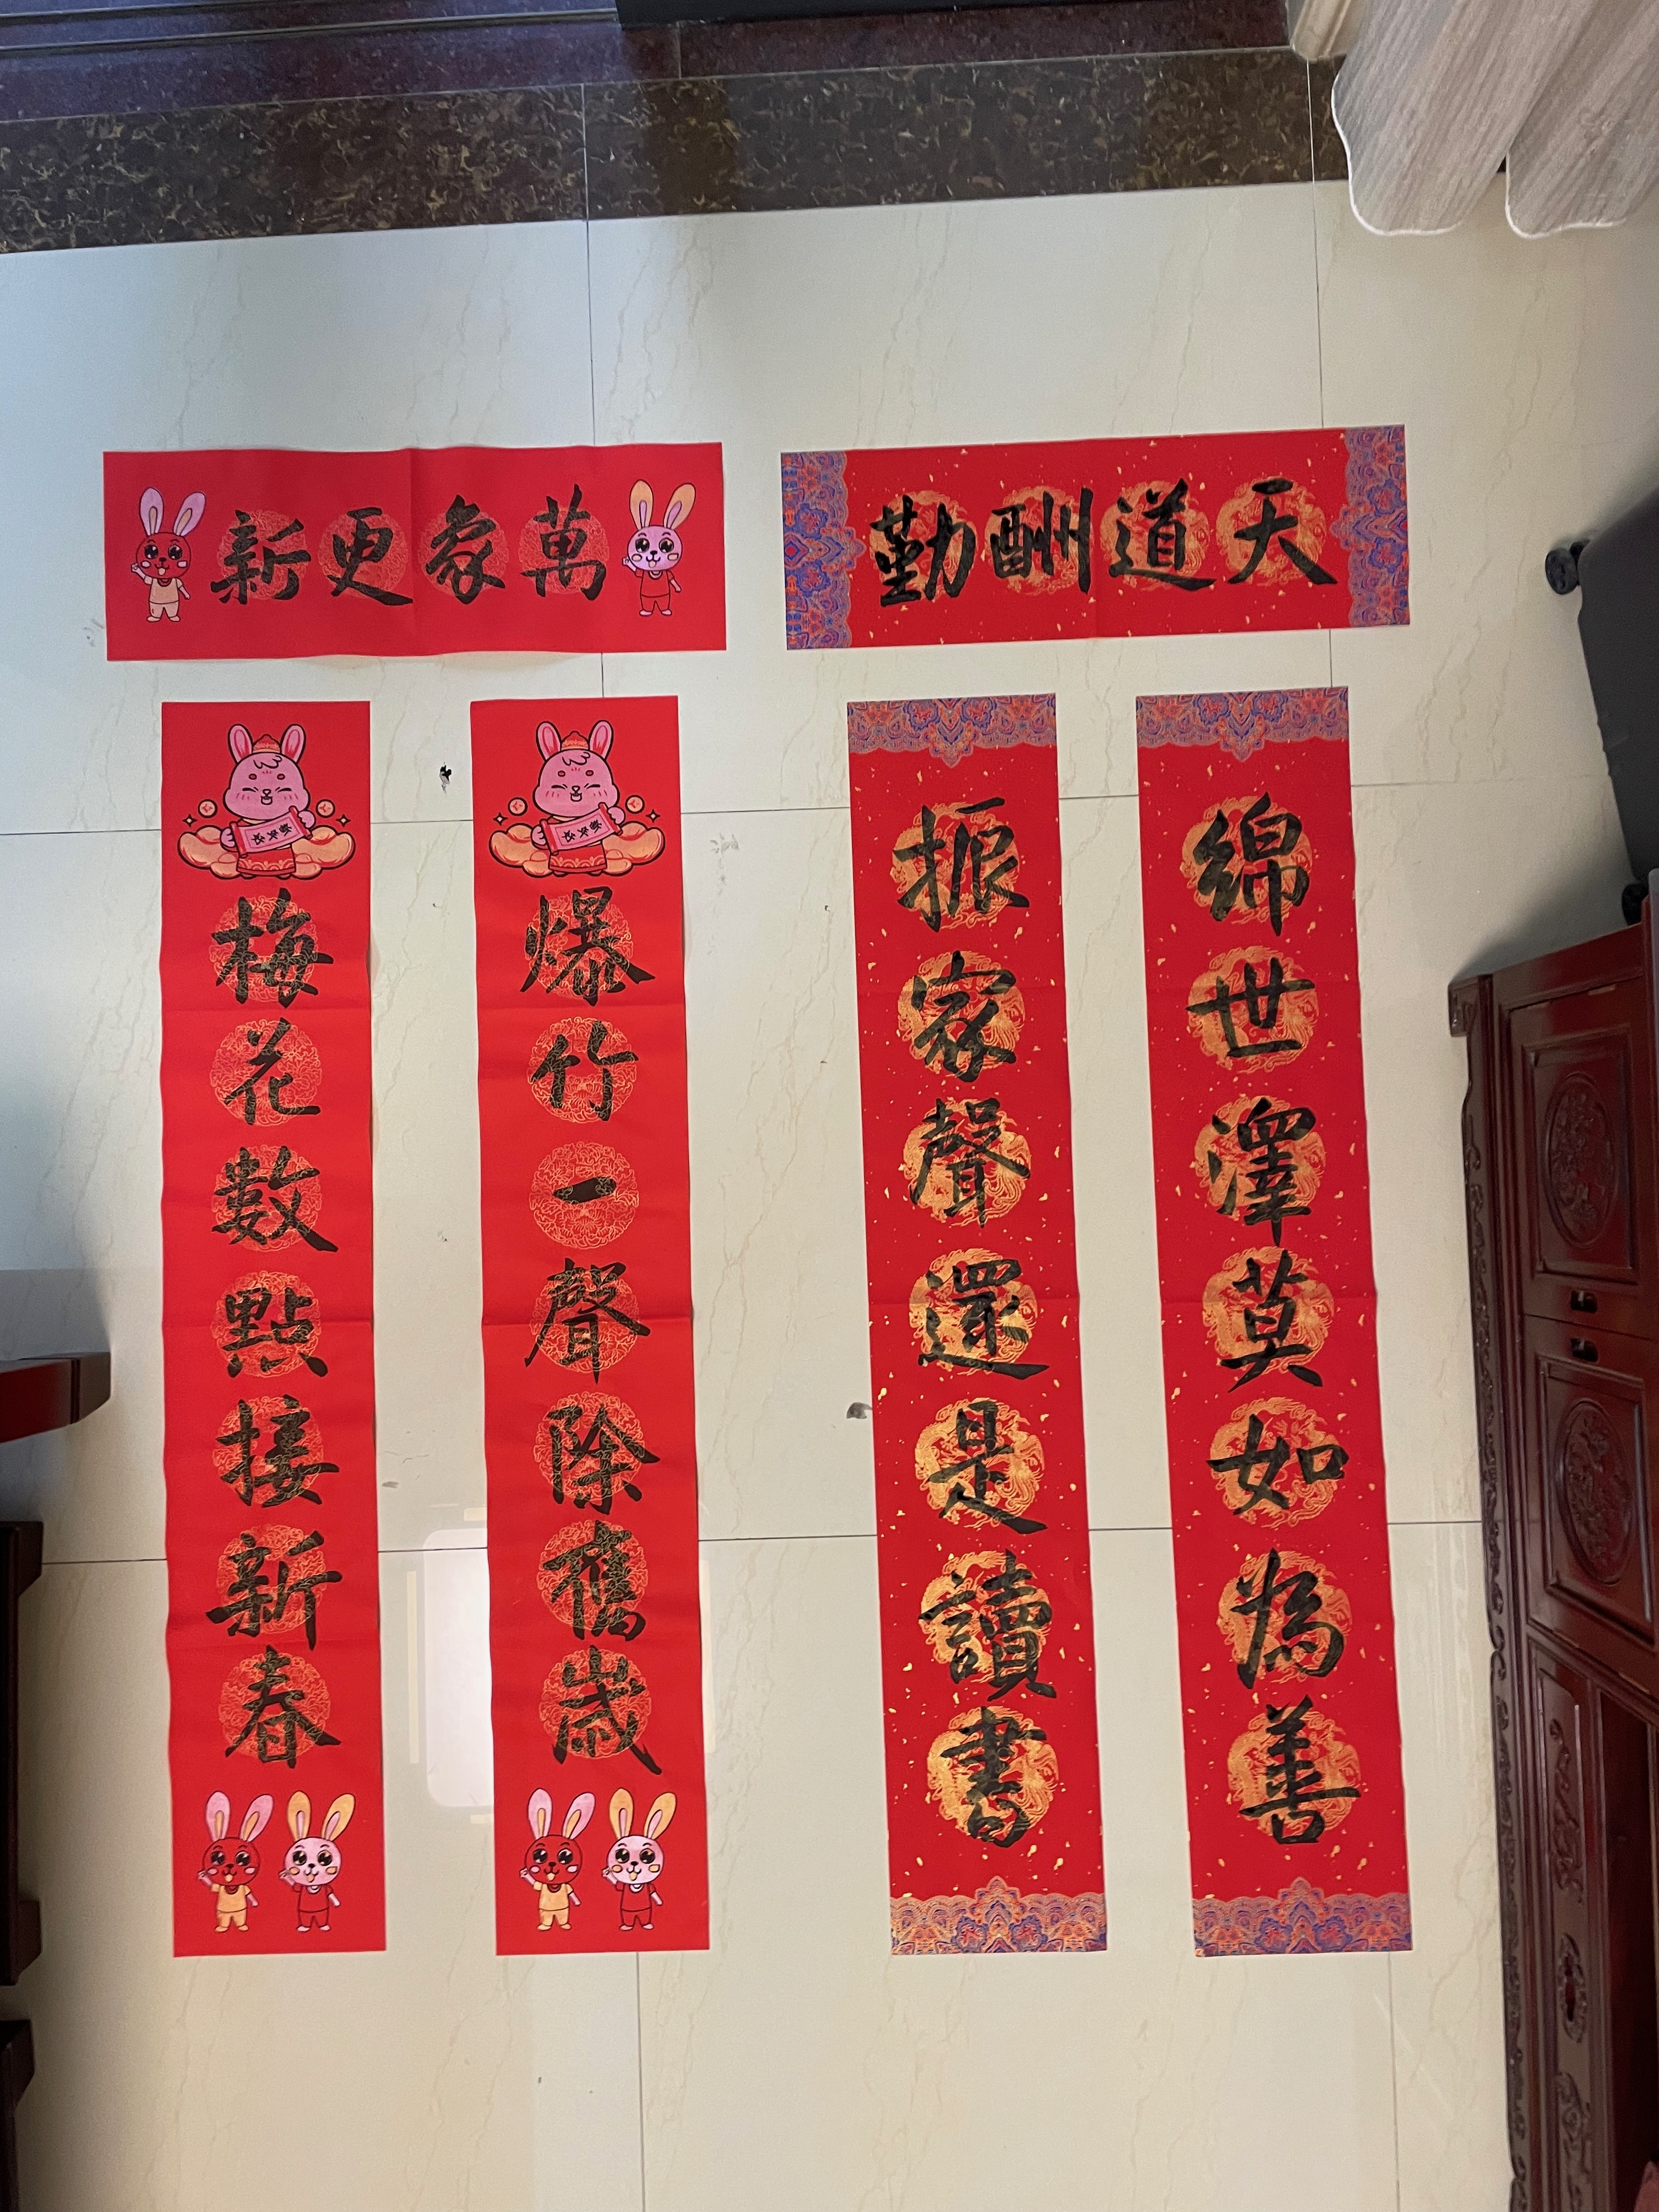 天道酬勤
綿世澤莫如為善
振家聲還是讀書
萬象更新
爆竹一聲除舊歲
梅花數點接新春